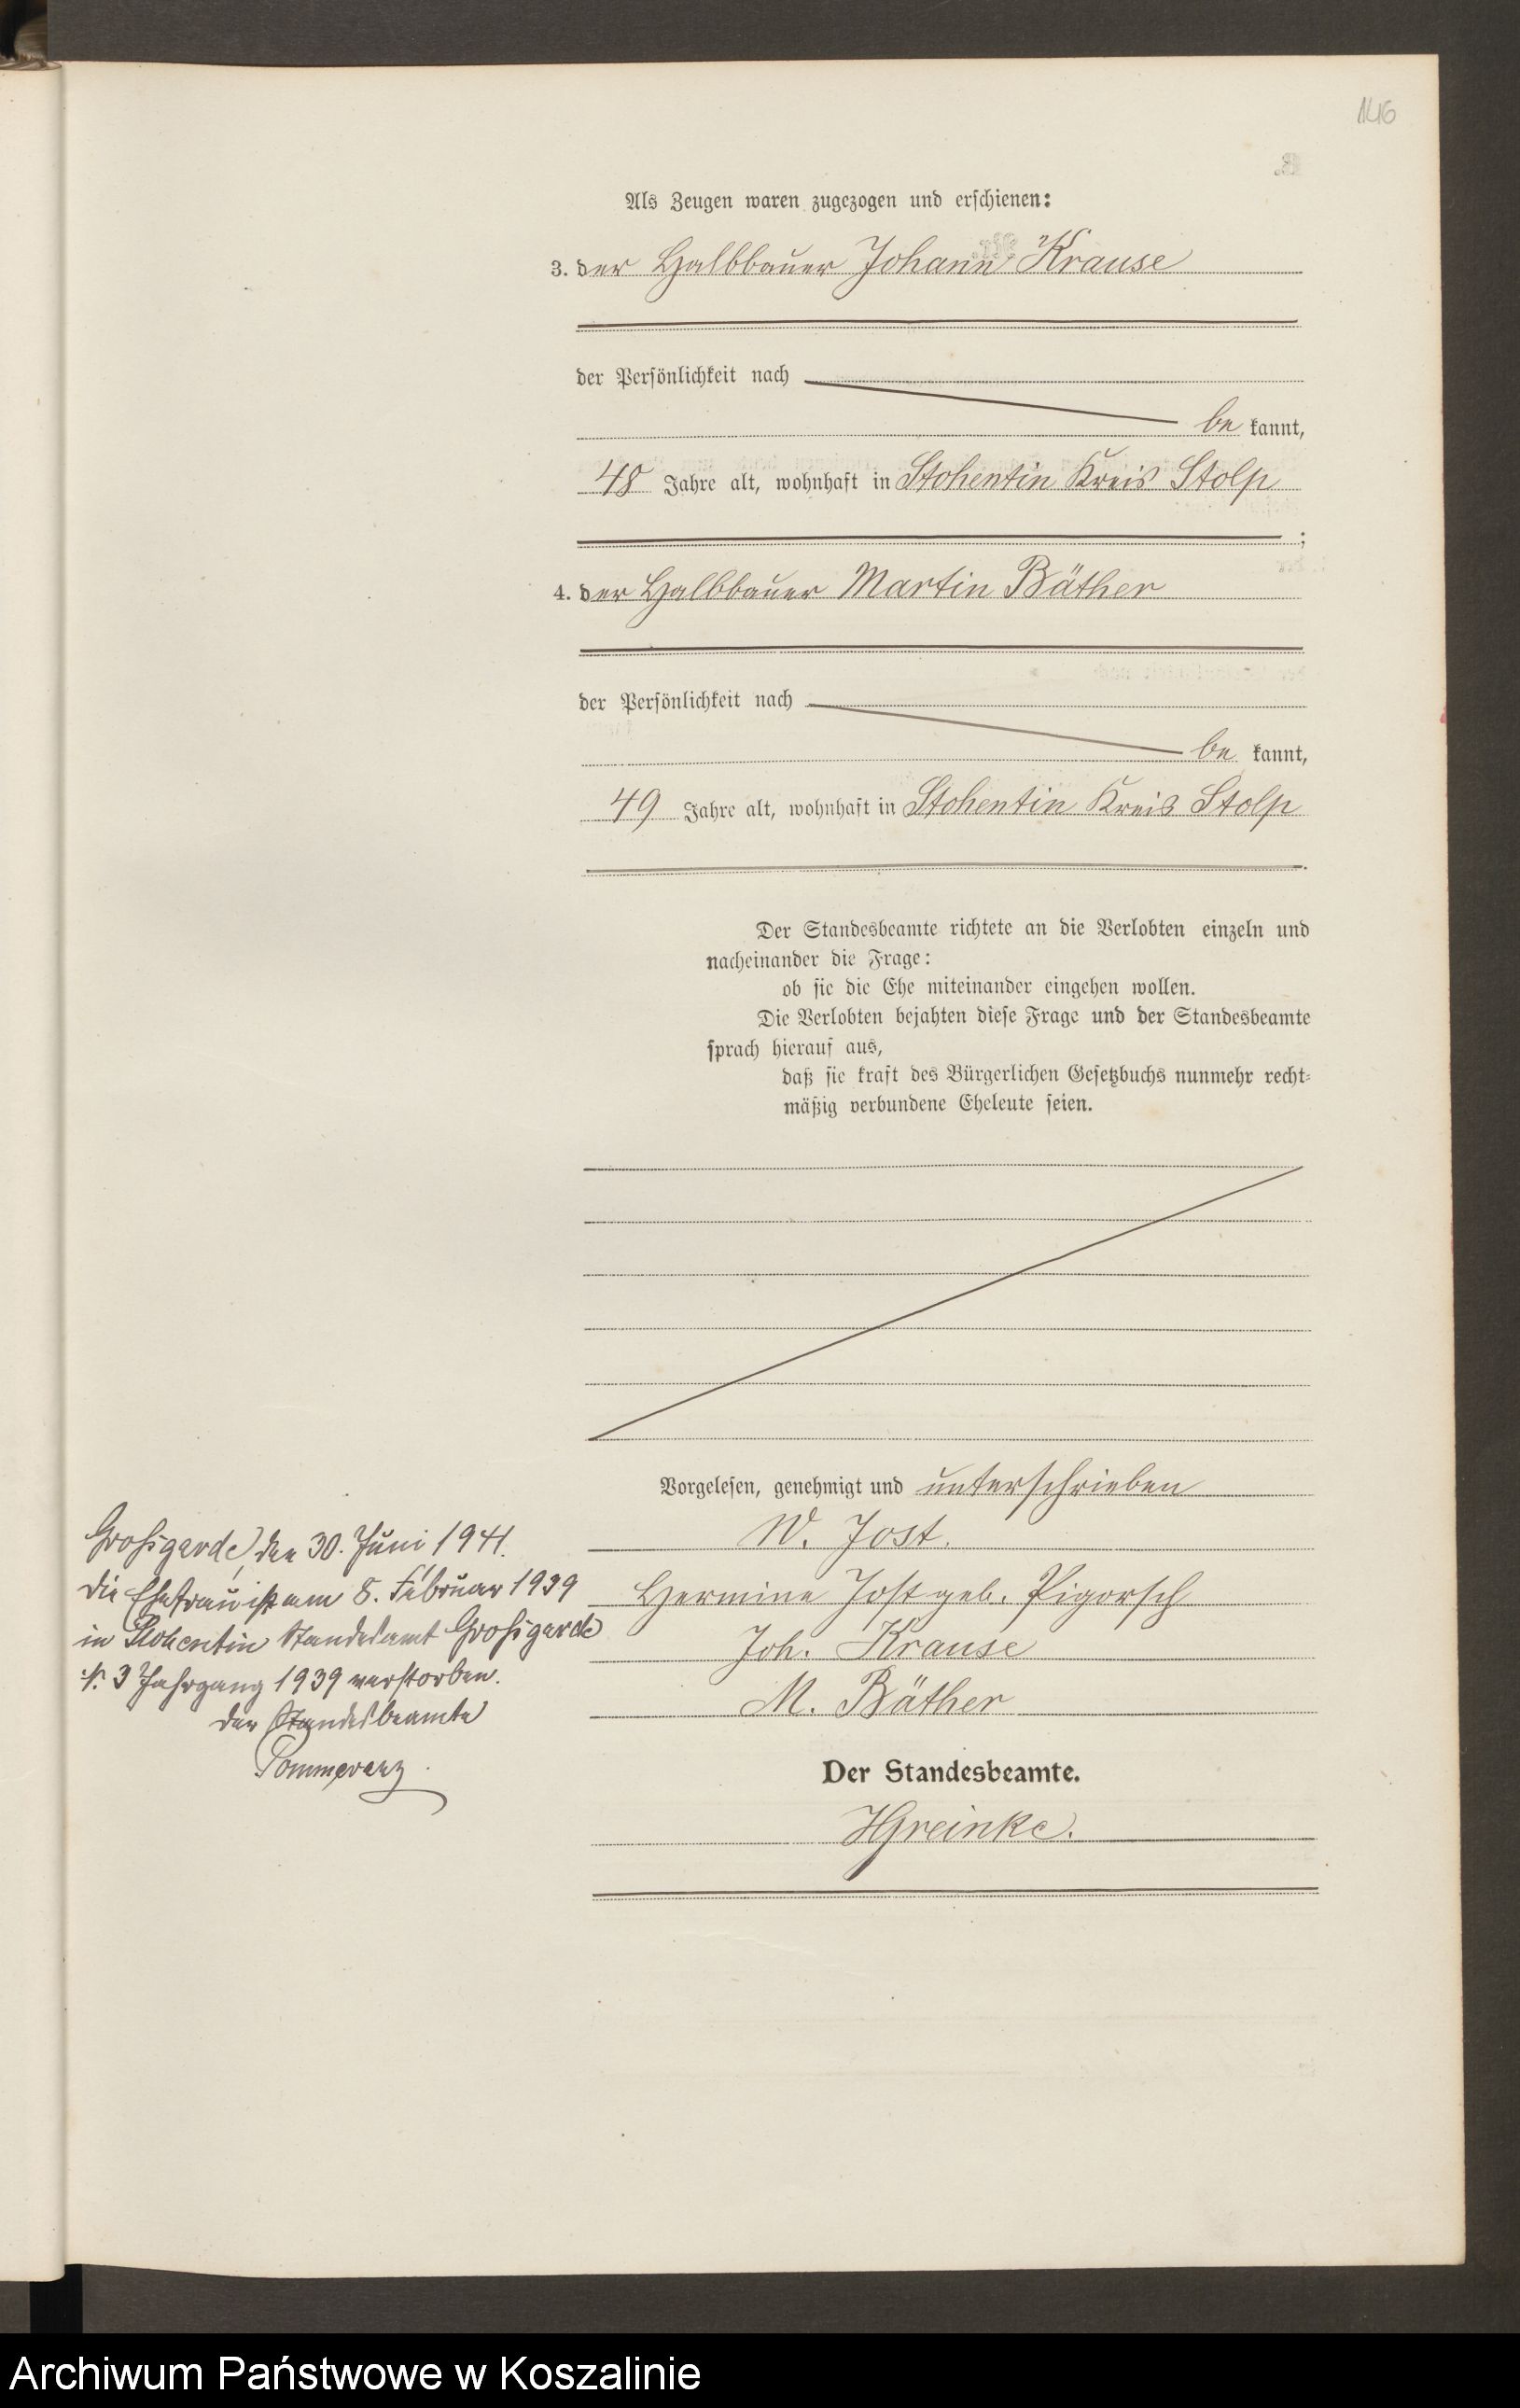 146
Als Zeugen waren zugezogen und erschienen:
3. der Halbbauer Johann Krause
der Persönlichkeit nach
be kannt,
48 Jahre alt, wohnhaft in Stohentin Kreis Stolp
;
4. der Halbbauer Martin Bäther
der Persönlichkeit nach
be kannt,
49 Jahre alt, wohnhaft in Stohentin Kreis Stolp
.
Der Standesbeamte richtete an die Verlobten einzeln und
nacheinander die Frage:
ob sie die Ehe miteinander eingehen wollen.
Die Verlobten bejahten diese Frage und der Standesbeamte
sprach hierauf aus,
daß sie kraft des Bürgerlichen Gesetzbuchs nunmehr recht-
mäßig verbundene Eheleute seien.
Vorgelesen, genehmigt und unterschrieben
W. Jost.
Hermine Jost geb. Pigorsch
Joh. Krause
M. Bäther
Der Standesbeamte.
HGreinke.
Großgarde, den 30. Juni 1941.
Die Ehefrau ist am 8. Februar 1939
in Stohentin Standesamt Großgarde
Nr. 3 Jahrgang 1939 verstorben.
Der Standesbeamte
Pommerenz
Archiwum Państwowe w Koszalinie